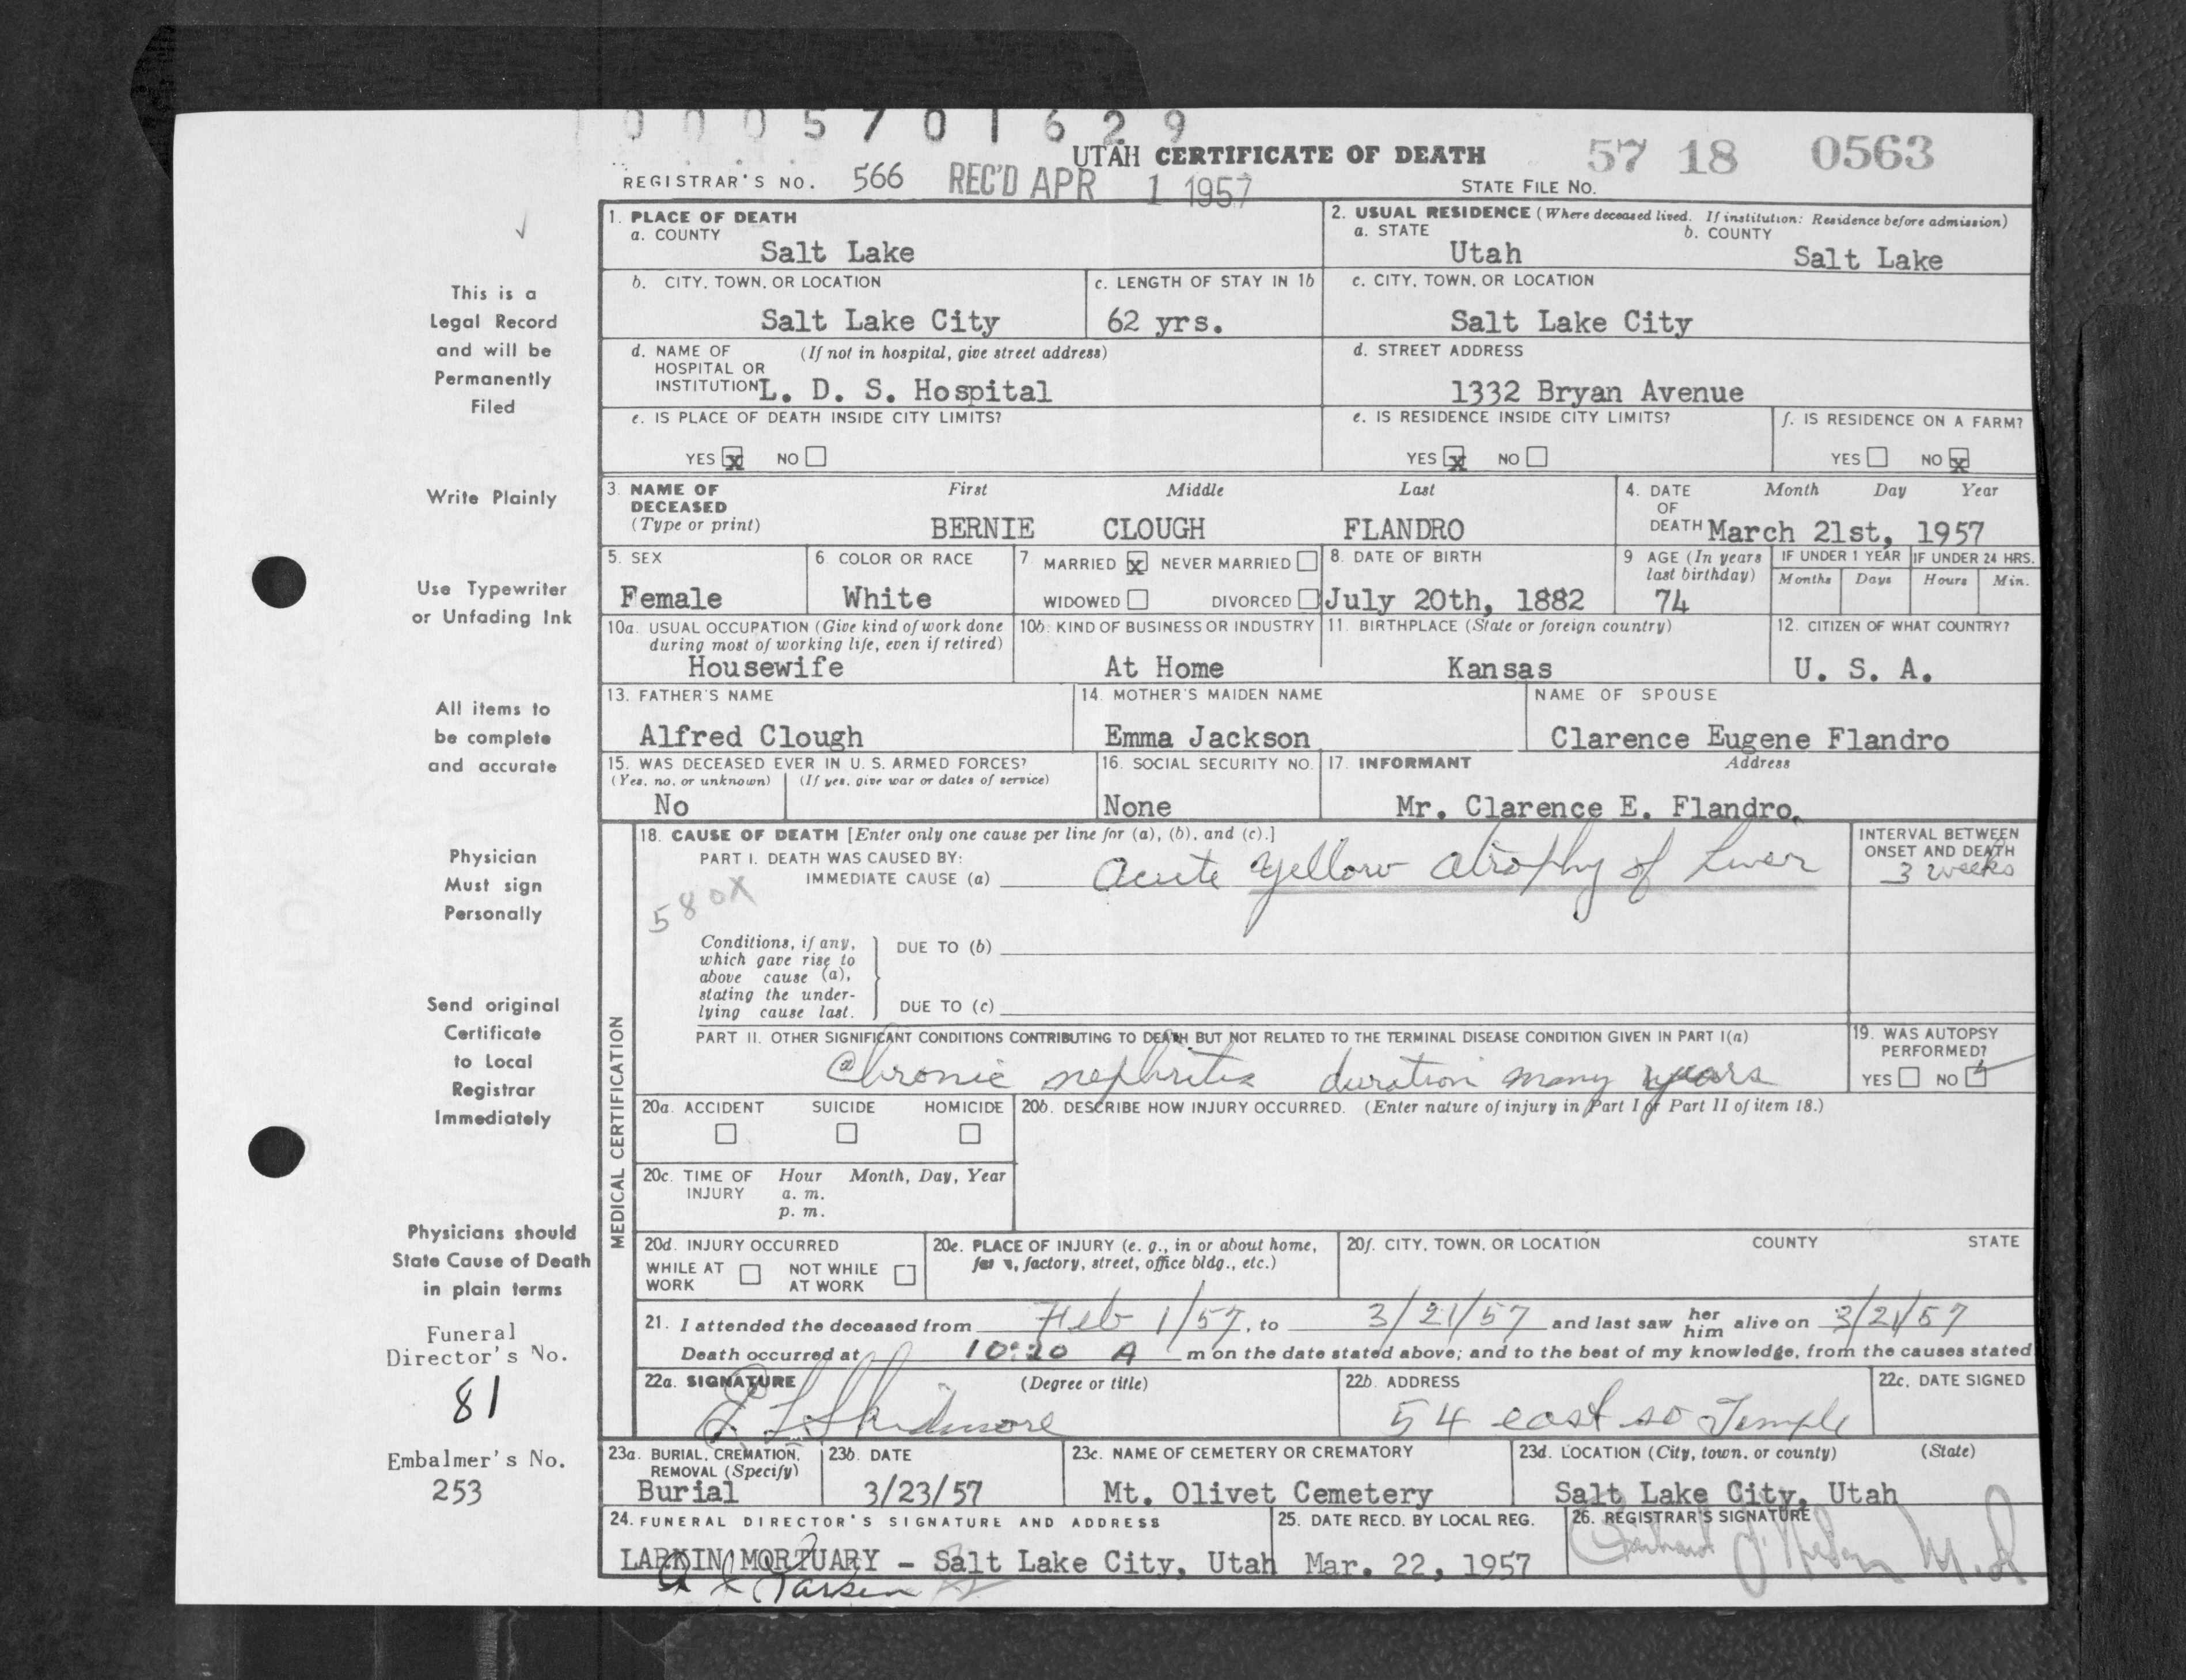 0005701629
UTAH CERTIFICATE OF DEATH 57 18 0563
REGISTRAR'S NO. 566 REC'D APR 1 1957 STATE FILE NO.
This is a
Legal Record
and will be
Permanently
Filed
Write Plainly
Use Typewriter
or Unfading Ink
All items to
be complete
and accurate
Physician
Must sign
Personally
Send original
Certificate
to Local
Registrar
Immediately
Physicians should
State Cause of Death
in plain terms
Funeral
Director's No.
81
Embalmer's No.
253
1. PLACE OF DEATH
a. COUNTY
Salt Lake
2. USUAL RESIDENCE (Where deceased lived. If institution: Residence before admission)
a. STATE b. COUNTY
Utah Salt Lake
b. CITY, TOWN, OR LOCATION
Salt Lake City
c. LENGTH OF STAY IN 1b
62 yrs.
c. CITY, TOWN, OR LOCATION
Salt Lake City
d. NAME OF (If not in hospital, give street address)
HOSPITAL OR
INSTITUTION L. D. S. Hospital
d. STREET ADDRESS
1332 Bryan Avenue
e. IS PLACE OF DEATH INSIDE CITY LIMITS?
YES x NO
e. IS RESIDENCE INSIDE CITY LIMITS?
YES x NO
f. IS RESIDENCE ON A FARM?
YES NO x
3. NAME OF First Middle Last
DECEASED
(Type or print) BERNIE CLOUGH FLANDRO
4. DATE Month Day Year
OF
DEATH March 21st, 1957
5. SEX
Female
6. COLOR OR RACE
White
7 MARRIED x NEVER MARRIED
WIDOWED DIVORCED
8. DATE OF BIRTH
July 20th, 1882
9 AGE (In years
last birthday)
74
IF UNDER 1 YEAR
Months Days
IF UNDER 24 HRS.
Hours Min.
10a. USUAL OCCUPATION (Give kind of work done
during most of working life, even if retired)
Housewife
10b. KIND OF BUSINESS OR INDUSTRY
At Home
11. BIRTHPLACE (State or foreign country)
Kansas
12. CITIZEN OF WHAT COUNTRY?
U. S. A.
13. FATHER'S NAME
Alfred Clough
14. MOTHER'S MAIDEN NAME
Emma Jackson
NAME OF SPOUSE
Clarence Eugene Flandro
15. WAS DECEASED EVER IN U. S. ARMED FORCES?
(Yes, no, or unknown) (If yes, give war or dates of service)
No
16. SOCIAL SECURITY NO.
None
17. INFORMANT Address
Mr. Clarence E. Flandro.
MEDICAL CERTIFICATION
18. CAUSE OF DEATH [Enter only one cause per line for (a), (b), and (c).]
PART I. DEATH WAS CAUSED BY:
IMMEDIATE CAUSE (a) Acute yellow atrophy of Liver
580X
INTERVAL BETWEEN
ONSET AND DEATH
3 weeks
Conditions, if any,
which gave rise to
above cause (a),
stating the under-
lying cause last.
DUE TO (b)
DUE TO (c)
PART II. OTHER SIGNIFICANT CONDITIONS CONTRIBUTING TO DEATH BUT NOT RELATED TO THE TERMINAL DISEASE CONDITION GIVEN IN PART I(a)
Chronic nephritis duration many years
19. WAS AUTOPSY
PERFORMED?
YES NO
20a. ACCIDENT SUICIDE HOMICIDE
20b. DESCRIBE HOW INJURY OCCURRED. (Enter nature of injury in Part I or Part II of item 18.)
20c. TIME OF Hour Month, Day, Year
INJURY a. m.
p. m.
20d. INJURY OCCURRED
WHILE AT NOT WHILE
WORK AT WORK
20e. PLACE OF INJURY (e. g., in or about home,
factory, street, office bldg., etc.)
20f. CITY, TOWN, OR LOCATION COUNTY STATE
21. I attended the deceased from Feb 1/57, to 3/21/57 and last saw her him alive on 3/21/57
Death occurred at 10:20 A m on the date stated above; and to the best of my knowledge, from the causes stated
22a. SIGNATURE (Degree or title)
E L Skidmore
22b. ADDRESS
54 east so Temple
22c. DATE SIGNED
23a. BURIAL, CREMATION,
REMOVAL (Specify)
Burial
23b. DATE
3/23/57
23c. NAME OF CEMETERY OR CREMATORY
Mt. Olivet Cemetery
23d. LOCATION (City, town, or county) (State)
Salt Lake City, Utah
24. FUNERAL DIRECTOR'S SIGNATURE AND ADDRESS
LARKIN MORTUARY - Salt Lake City, Utah
Larkin
25. DATE RECD. BY LOCAL REG.
Mar. 22, 1957
26. REGISTRAR'S SIGNATURE
M.D